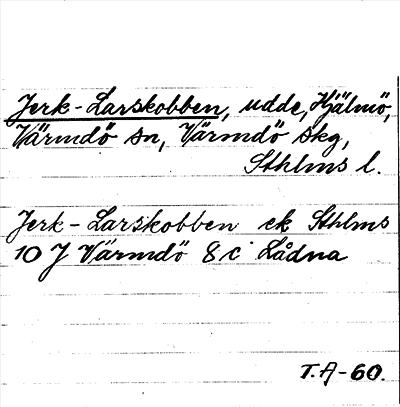 Jerk-Larskobben, udde, Hjälmö,
Värmdö sn, Värmdö skg,
Sthlms l.
Jerk-Larskobben ek Sthlms
10 J Värmdö 8 c Lådna
T.A-60.